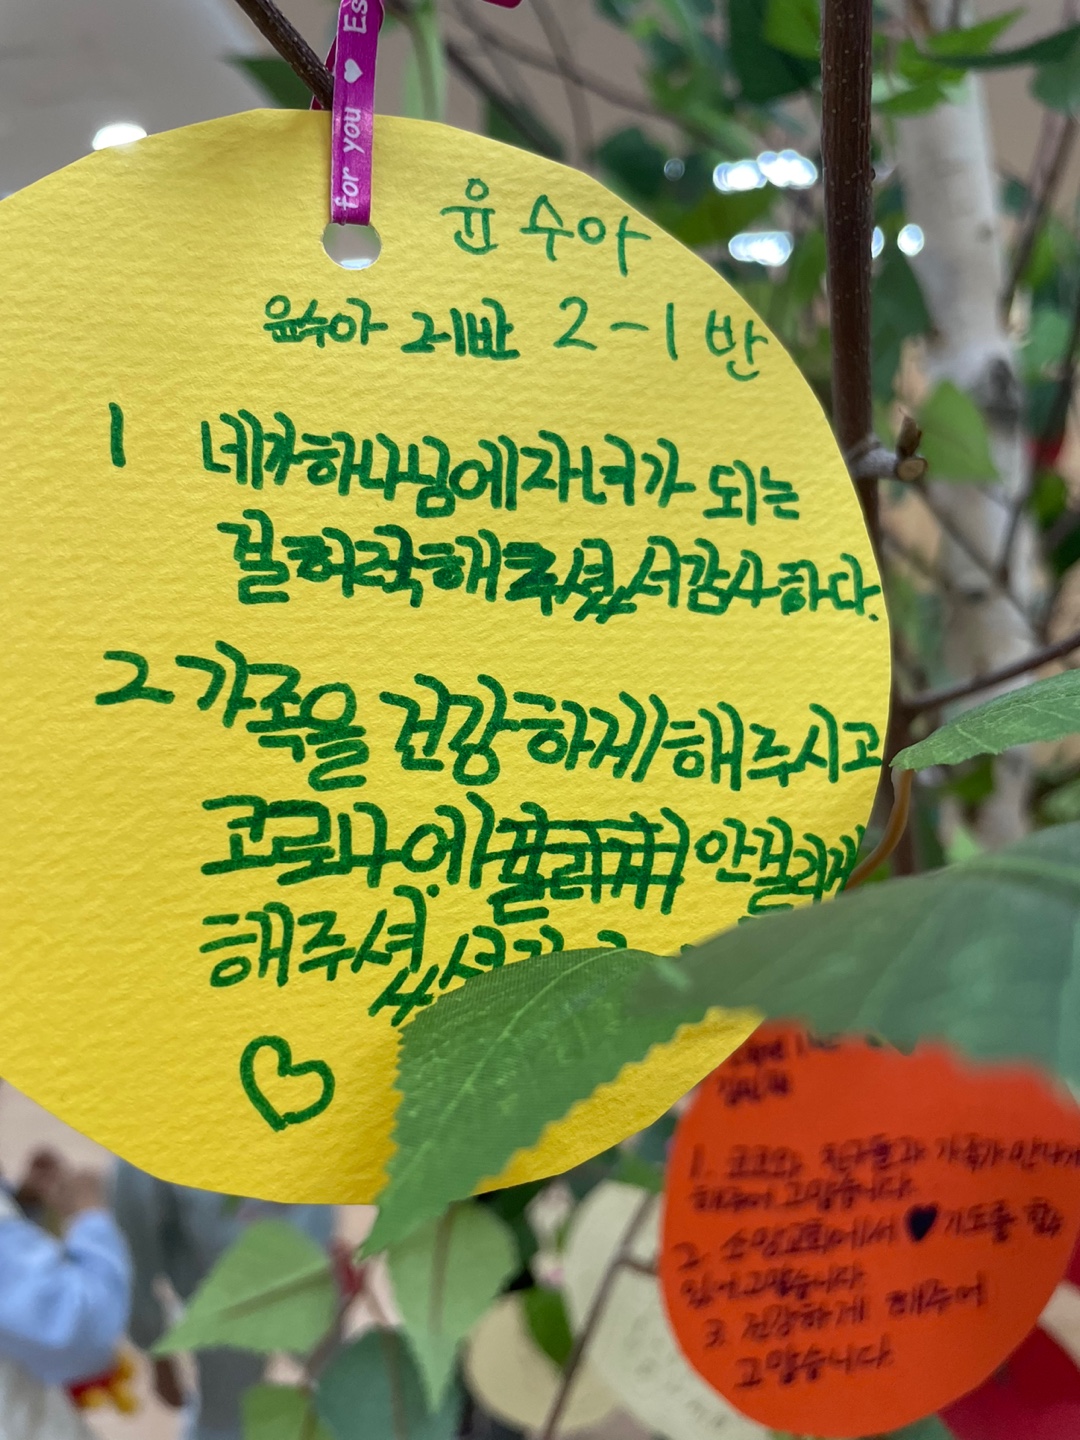 for you ♥ Es
윤 수아
윤수아 2-1반 2-1 반
1 네가하나님에자녀가 되는
걸허락해주셨서감사하다.
2 가족을 건강하게해주시고
코로나에 안걸리게
해주셨서
♡
1. 친구들과 가족가만나게
해주어 고맙습니다.
2. 소망교회에서 ♥기도를 할수
있어고맙습니다
3. 건강하게 해주어
고맙습니다